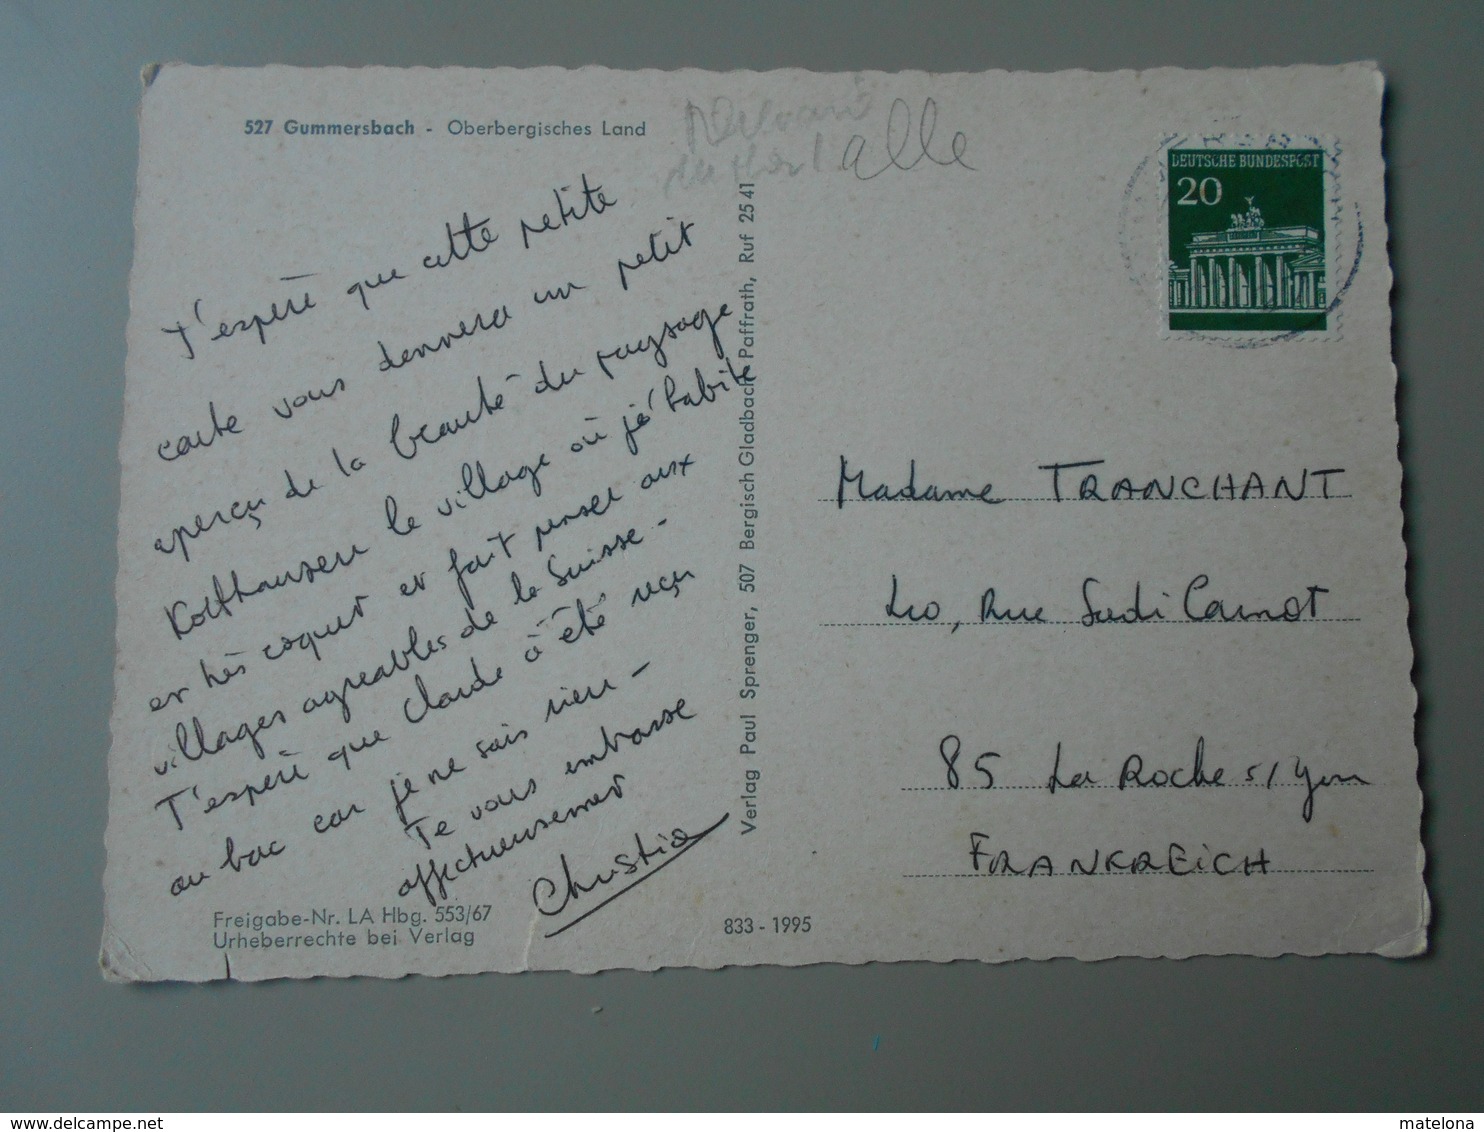 527 Gummersbach - Oberbergisches Land
alle
J'espère que cette petite
carte vous donnera un petit
aperçu de la beauté du paysage
Kotthausen le village où j'habite
est très coquet et fait penser aux
villages agréables de la Suisse -
J'espère que Claude a été reçu
au bac car je ne sais rien -
Je vous embrasse
affectueusement
Christia
Freigabe-Nr. LA Hbg. 553/67
Urheberrechte bei Verlag
833 - 1995
Verlag Paul Sprenger, 507 Bergisch Gladbach-Paffrath, Ruf 25 41
DEUTSCHE BUNDESPOST
20
Madame TRANCHANT
40, Rue Sadi Carnot
85 La Roche s/ Yon
FRANKREICH
matelona
www.delcampe.net